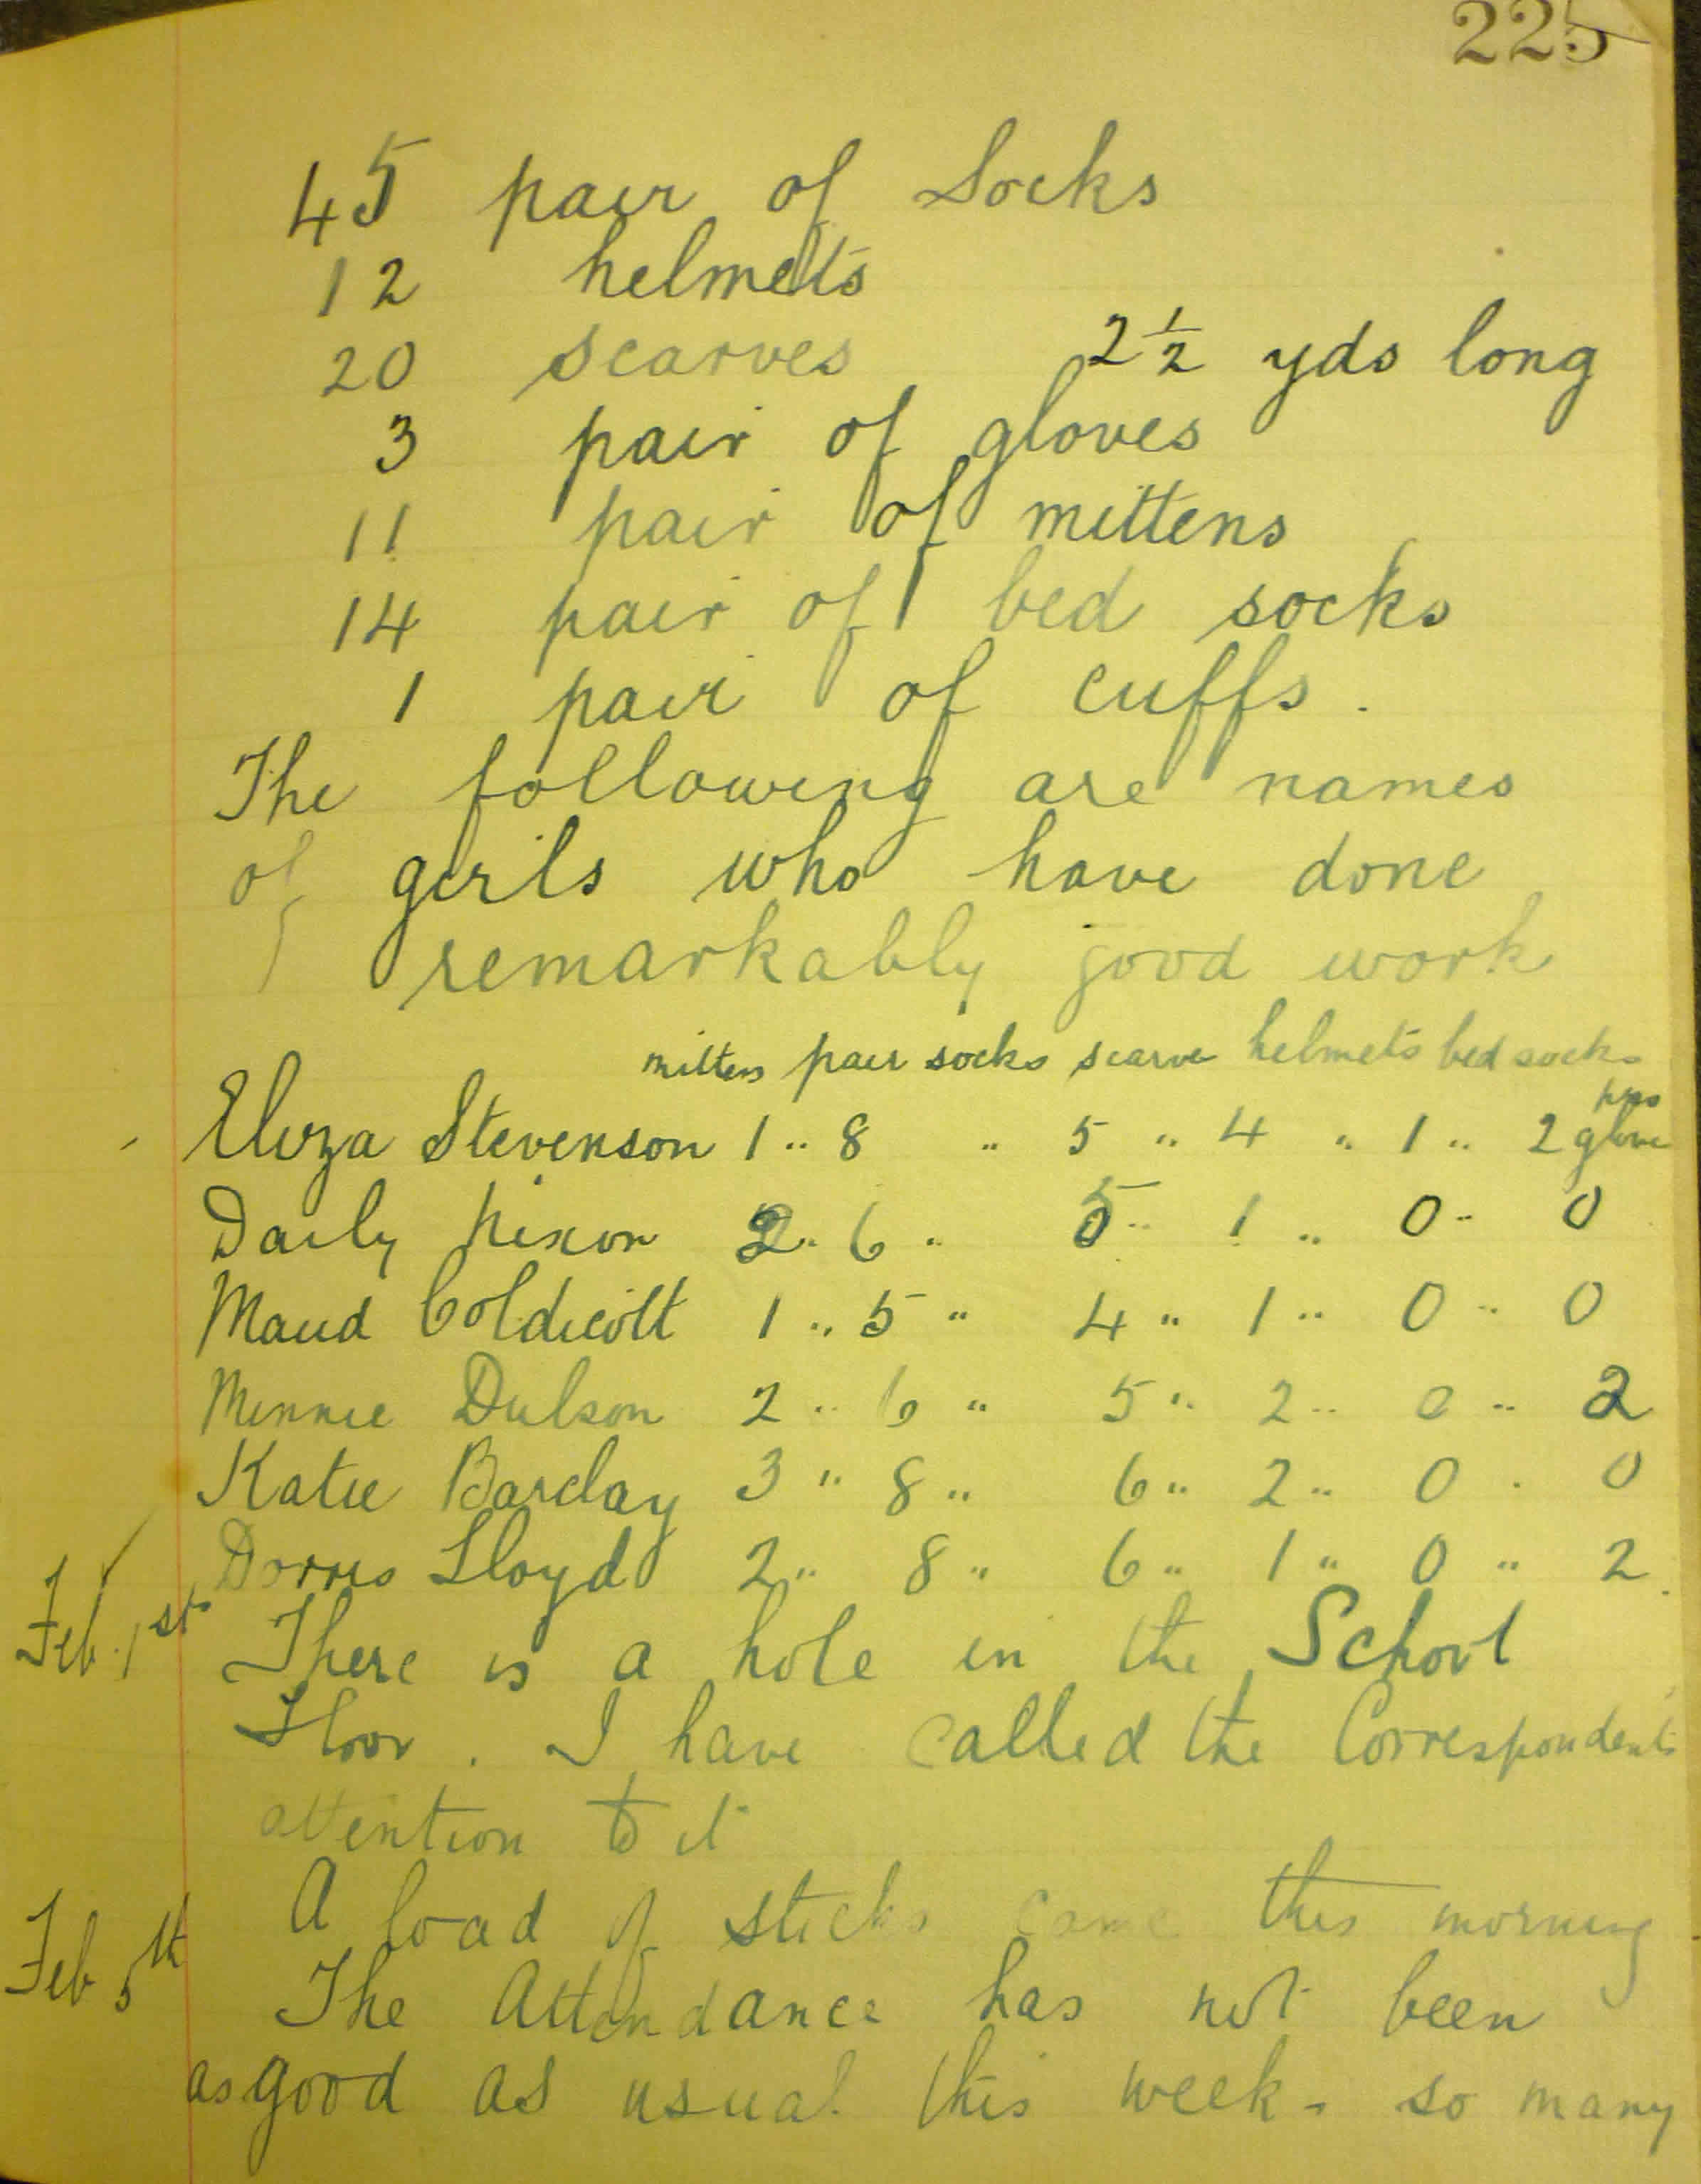 225
45 pair of Socks
12 helmets
20 scarves 2 1/2 yds long
3 pair of gloves
11 pair of mittens
14 pair of bed socks
1 pair of cuffs.
The following are names
of girls who have done
remarkably good work
mittens pair socks scarve helmets bed socks
prs
Eliza Stevenson 1 .. 8 .. 5 .. 4 .. 1 .. 2 glove
Daily Nixon 2 .. 6 .. 5 .. 1 .. 0 .. 0
Maud Coldicott 1 .. 5 .. 4 .. 1 .. 0 .. 0
Minnie Dulson 2 .. 6 .. 5 .. 2 .. 0 .. 2
Katie Barclay 3 .. 8 .. 6 .. 2 .. 0 . 0
Dorris Lloyd 2 .. 8 .. 6 .. 1 .. 0 .. 2.
Feb. 1st There is a hole in the School
Floor. I have called the Correspondent's
attention to it
A load of sticks came this morning
Feb 5th The Attendance has not been
as good as usual this week - so many